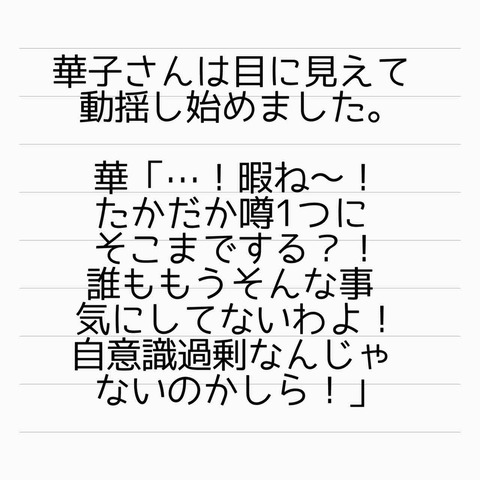 華子さんは目に見えて
動揺し始めました。
華「…！暇ね〜！
たかだか噂1つに
そこまでする？！
誰ももうそんな事
気にしてないわよ！
自意識過剰なんじゃ
ないのかしら！」